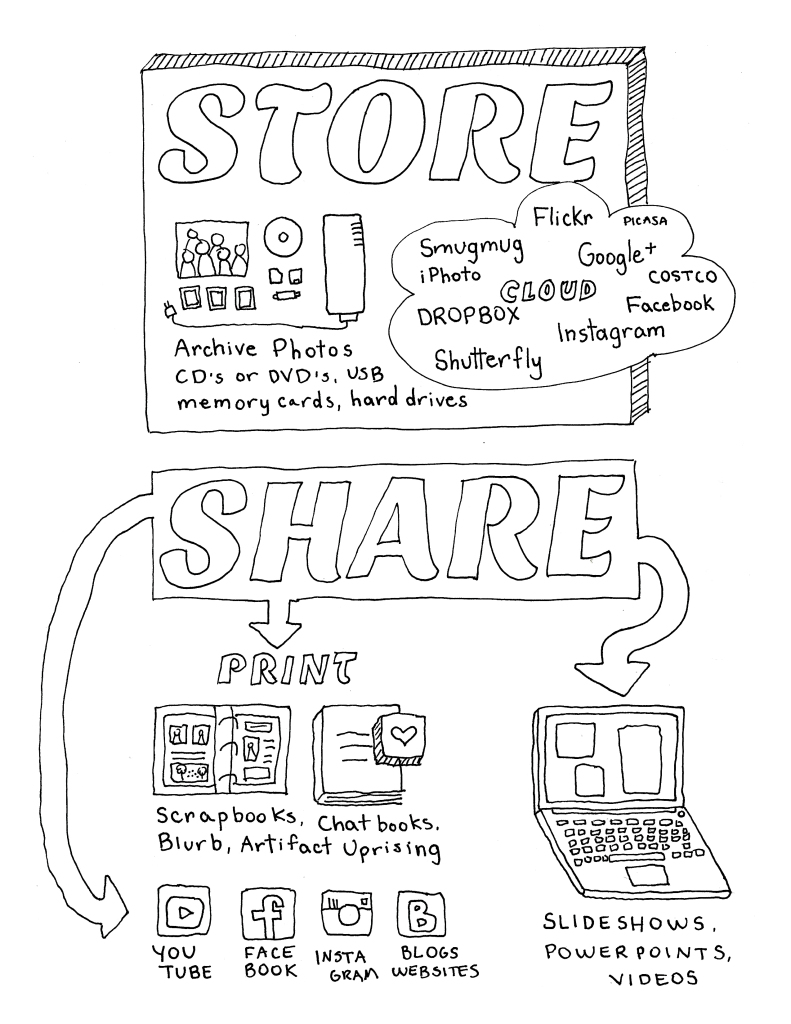 STORE
Flickr PICASA
Smugmug Google+
iPhoto COSTCO
CLOUD
DROPBOX Facebook
Instagram
Shutterfly
Archive Photos
CD's or DVD's, USB
memory cards, hard drives
SHARE
PRINT
Scrapbooks, Chatbooks,
Blurb, Artifact Uprising
YOU
TUBE
FACE
BOOK
INSTA
GRAM
B
BLOGS
WEBSITES
SLIDESHOWS,
POWERPOINTS,
VIDEOS